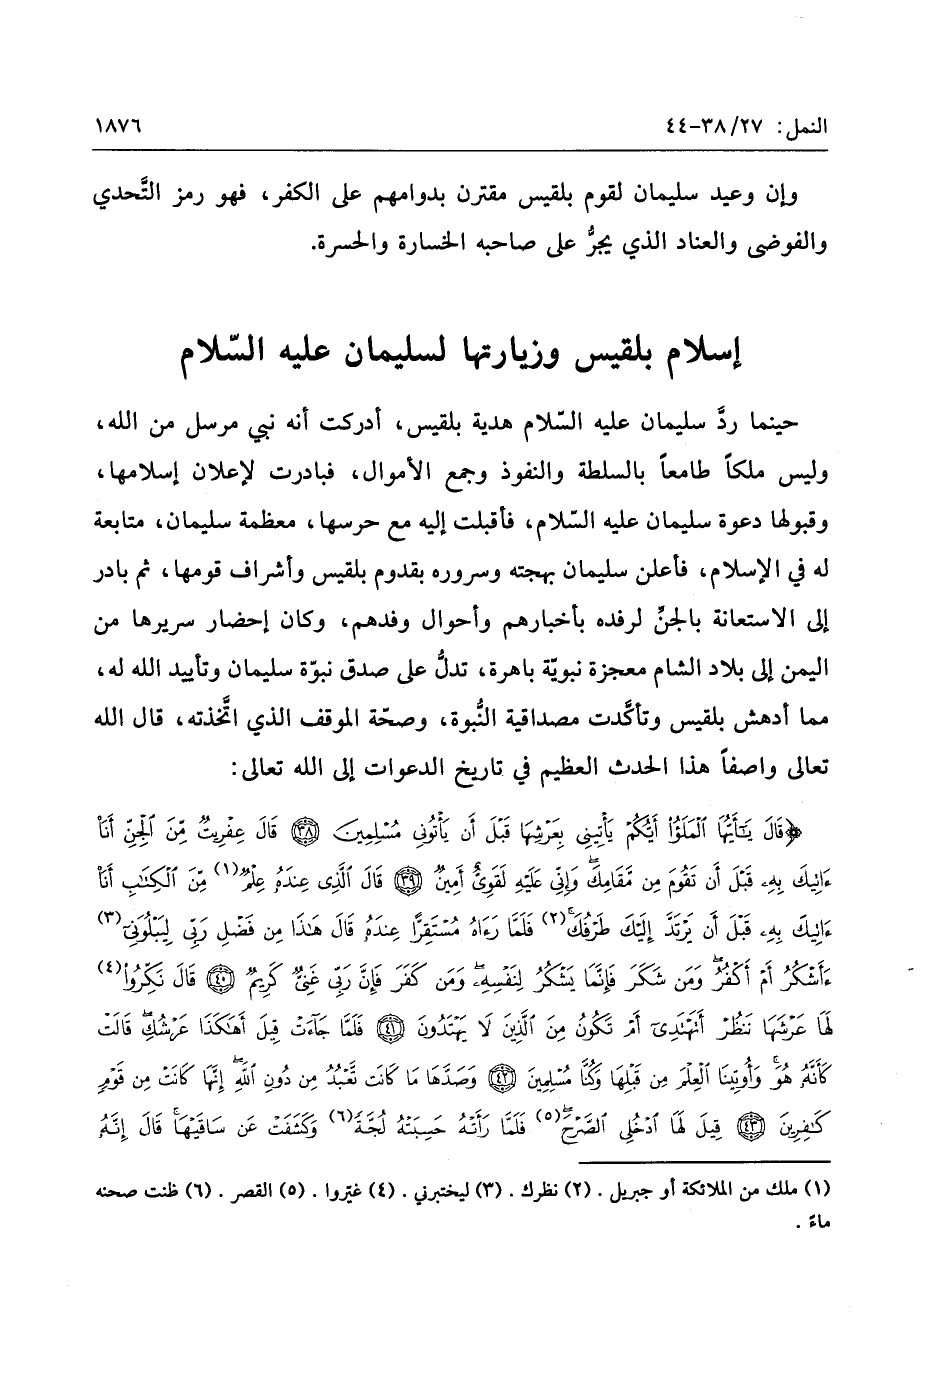 النمل: ٢٧/ ٣٨-٤٤ ١٨٧٦
وإن وعيد سليمان لقوم بلقيس مقترن بدوامهم على الكفر، فهو رمز التَّحدي
والفوضى والعناد الذي يجرُّ على صاحبه الخسارة والحسرة.
إسلام بلقيس وزيارتها لسليمان عليه السّلام
حينما ردَّ سليمان عليه السّلام هدية بلقيس، أدركت أنه نبي مرسل من الله،
وليس ملكاً طامعاً بالسلطة والنفوذ وجمع الأموال، فبادرت لإعلان إسلامها،
وقبولها دعوة سليمان عليه السّلام، فأقبلت إليه مع حرسها، معظمة سليمان، متابعة
له في الإسلام، فأعلن سليمان بهجته وسروره بقدوم بلقيس وأشراف قومها، ثم بادر
إلى الاستعانة بالجنِّ لرفده بأخبارهم وأحوال وفدهم، وكان إحضار سريرها من
اليمن إلى بلاد الشام معجزة نبويّة باهرة، تدلُّ على صدق نبوّة سليمان وتأييد الله له،
مما أدهش بلقيس وتأكَّدت مصداقية النُّبوة، وصحّة الموقف الذي اتَّخذته، قال الله
تعالى واصفاً هذا الحدث العظيم في تاريخ الدعوات إلى الله تعالى:
﴿قَالَ يَٰٓأَيُّهَا ٱلْمَلَؤُا۟ أَيُّكُمْ يَأْتِينِى بِعَرْشِهَا قَبْلَ أَن يَأْتُونِى مُسْلِمِينَ ٣٨ قَالَ عِفْرِيتٌ مِّنَ ٱلْجِنِّ أَنَا۠
ءَاتِيكَ بِهِۦ قَبْلَ أَن تَقُومَ مِن مَّقَامِكَ ۖ وَإِنِّى عَلَيْهِ لَقَوِىٌّ أَمِينٌ ٣٩ قَالَ ٱلَّذِى عِندَهُۥ عِلْمٌ(١) مِّنَ ٱلْكِتَٰبِ أَنَا۠
ءَاتِيكَ بِهِۦ قَبْلَ أَن يَرْتَدَّ إِلَيْكَ طَرْفُكَ ۚ(٢) فَلَمَّا رَءَاهُ مُسْتَقِرًّا عِندَهُۥ قَالَ هَٰذَا مِن فَضْلِ رَبِّى لِيَبْلُوَنِىٓ(٣)
ءَأَشْكُرُ أَمْ أَكْفُرُ ۖ وَمَن شَكَرَ فَإِنَّمَا يَشْكُرُ لِنَفْسِهِۦ ۖ وَمَن كَفَرَ فَإِنَّ رَبِّى غَنِىٌّ كَرِيمٌ ٤٠ قَالَ نَكِّرُوا۟(٤)
لَهَا عَرْشَهَا نَنظُرْ أَتَهْتَدِىٓ أَمْ تَكُونُ مِنَ ٱلَّذِينَ لَا يَهْتَدُونَ ٤١ فَلَمَّا جَآءَتْ قِيلَ أَهَٰكَذَا عَرْشُكِ ۖ قَالَتْ
كَأَنَّهُۥ هُوَ ۚ وَأُوتِينَا ٱلْعِلْمَ مِن قَبْلِهَا وَكُنَّا مُسْلِمِينَ ٤٢ وَصَدَّهَا مَا كَانَت تَّعْبُدُ مِن دُونِ ٱللَّهِ ۖ إِنَّهَا كَانَتْ مِن قَوْمٍ
كَٰفِرِينَ ٤٣ قِيلَ لَهَا ٱدْخُلِى ٱلصَّرْحَ ۖ(٥) فَلَمَّا رَأَتْهُ حَسِبَتْهُ لُجَّةً(٦) وَكَشَفَتْ عَن سَاقَيْهَا ۚ قَالَ إِنَّهُۥ
(١) ملك من الملائكة أو جبريل. (٢) نظرك. (٣) ليختبرني. (٤) غيّروا. (٥) القصر. (٦) ظنت صحنه
ماءً.